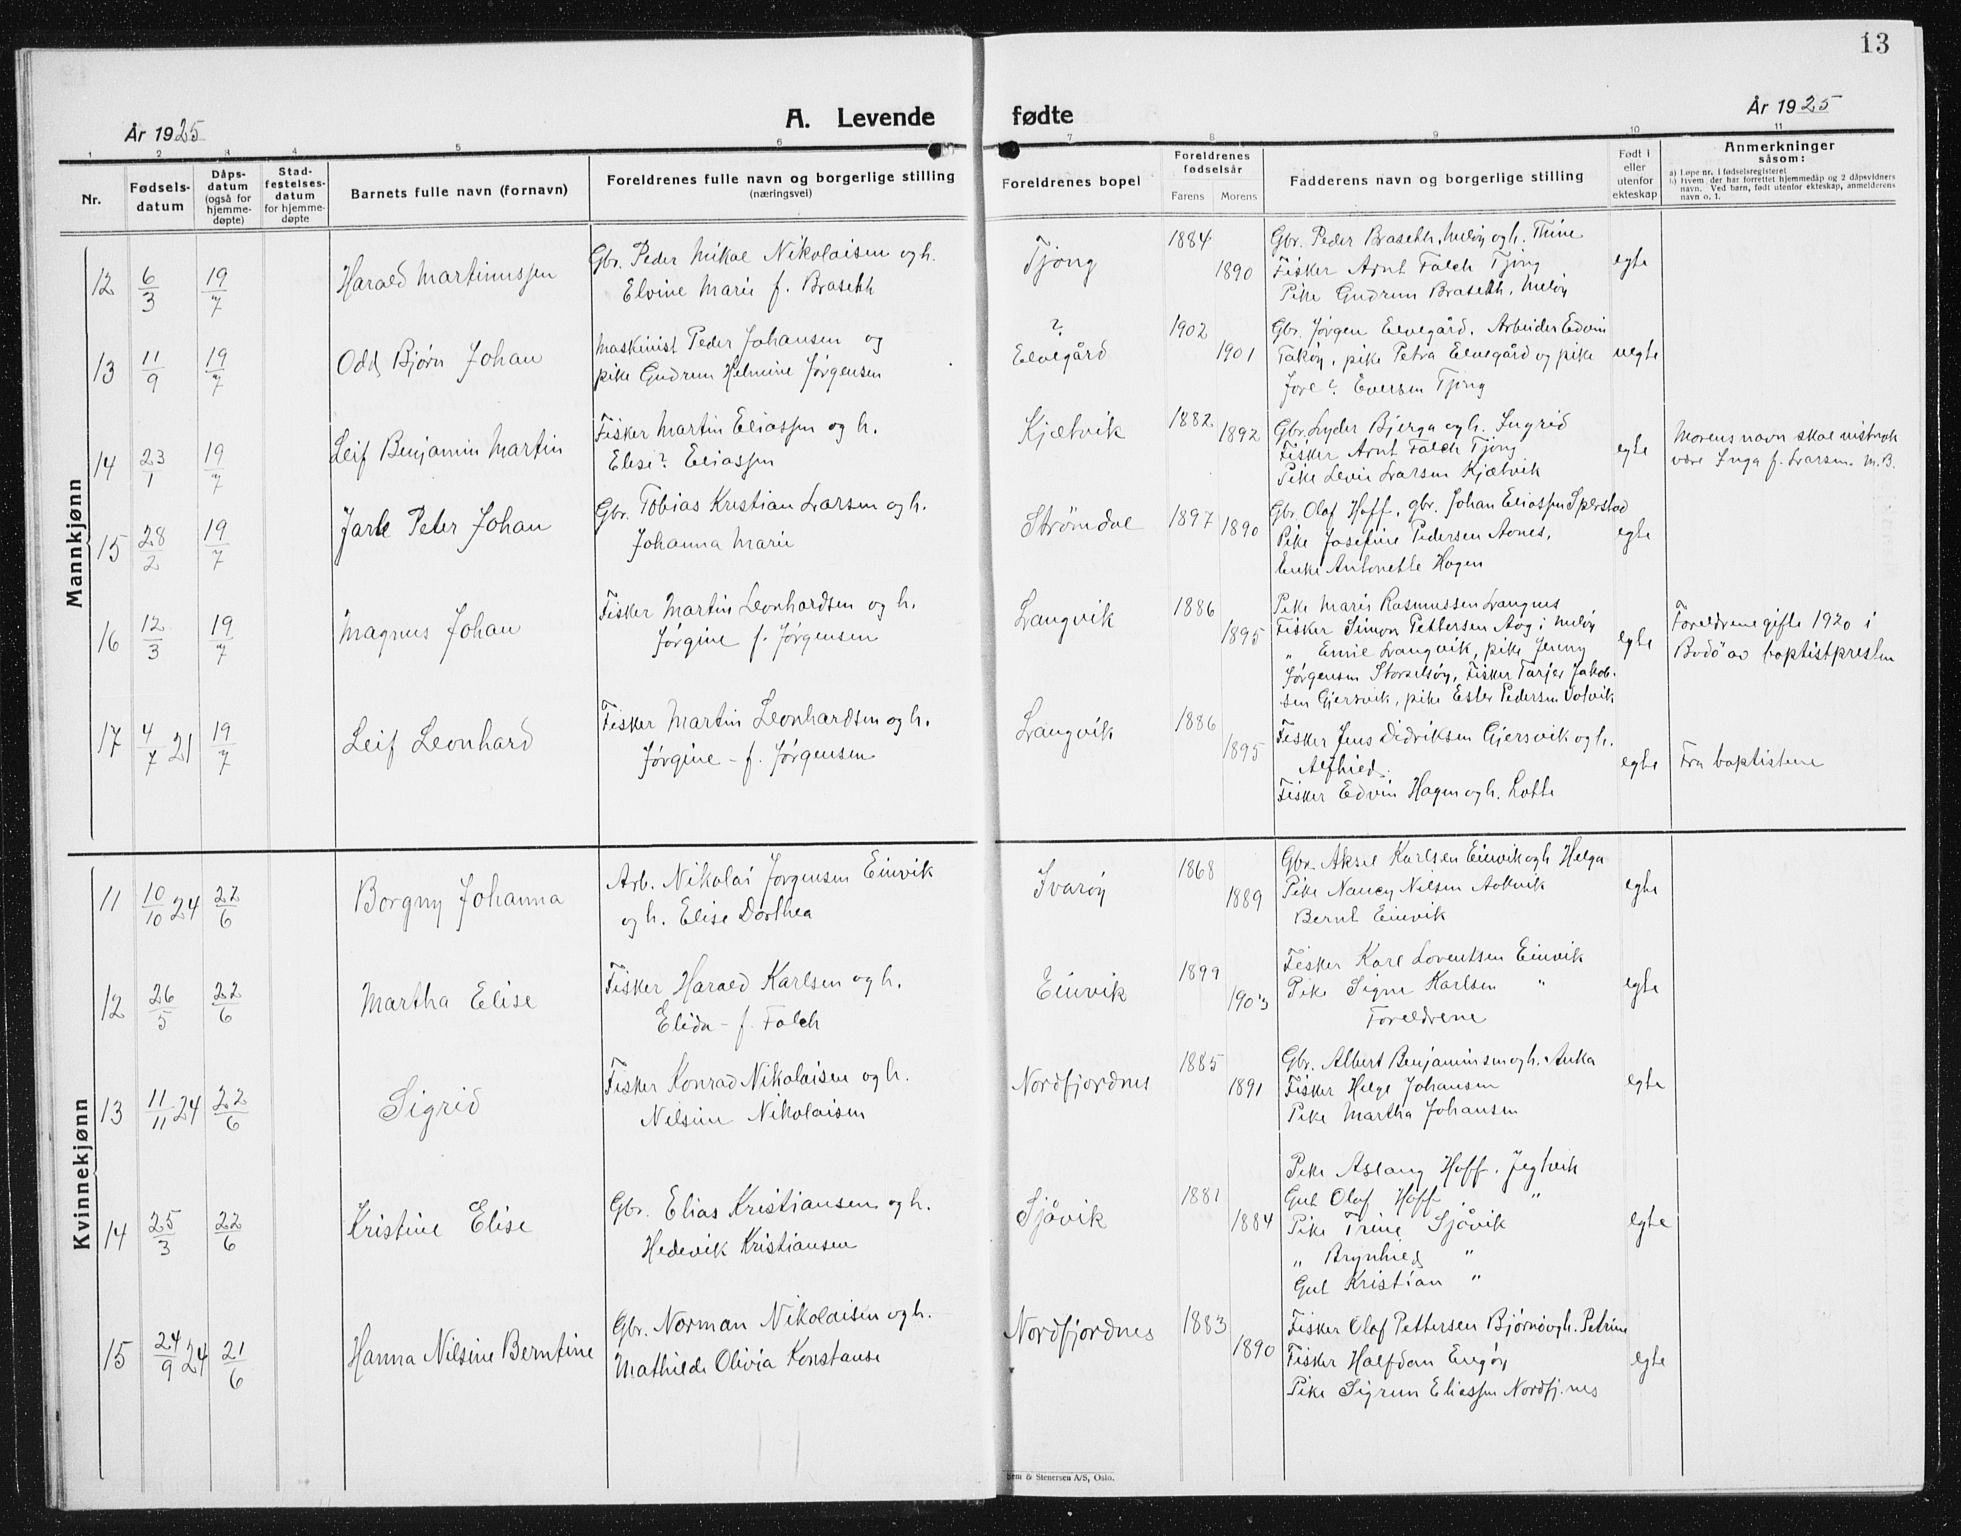 13
År 1925
A. Levende fødte
År 1925
1 2 3 4 5 6 7 8 9 10 11
Nr.
Fødsels-
datum
Dåps-
datum
(også for
hjemme-
døpte)
Stad-
festelses-
datum
for hjemme-
døpte
Barnets fulle navn (fornavn)
Foreldrenes fulle navn og borgerlige stilling
(næringsvei)
Foreldrenes bopel
Foreldrenes
fødselsår
Farens Morens
Fadderens navn og borgerlige stilling
Født i
eller
utenfor
ekteskap
Anmerkninger
såsom:
a) Løpe nr. i fødselsregisteret
b) Hvem der har forrettet hjemmedåp og 2 dåpsvidners
navn. Ved barn, født utenfor ekteskap, anmelderens
navn o. l.
Mannkjønn
12 6/3 19/7 Harald Martinussen
Gbr. Peder Mikal Nikolaisen og h.
Elvine Marie f. Brasetth
Tjong
1884
1890
Gbr. Peder Brasetth, Meløy og h. Thine
Fisker Arnt Falch Tjong
Pike Gudrun Brasetth, Meløy
egte
13 11/9 19/7 Odd Bjørn Johan
Maskinist Peder Johansen og
pike Gudrun Helmine Jørgensen
?
Elvegård
1902
1901
Gbr. Jørgen Elvegård. Arbeider Edvin
Takøy, pike Petra Elvegård og pike
Jore? Eversen Tjong
uegte
14 23/1 19/7 Leif Benjamin Martin
Fisker Martin Eliassen og h.
Elise? Eliassen
Kjætvik
1882
1892
Gbr. Lyder Bjerga og h. Ingrid
Fisker Arnt Falch Tjong
Pike Levin Larsen Kjætvik
egte
Morens navn skal vistnok
være Inga f. Larsen. M.B.
15 28/2 19/7 Jarle Peter Johan
Gbr. Tobias Kristian Larsen og h.
Johanna Marie
Strømdal
1897
1890
Gbr. Olaf Hoff, gbr. Johan Eliassen Sperstad
Pike Josefine Pedersen Aanes,
Enke Antonette Hagen
egte
16 12/3 19/7 Magnus Johan
Fisker Martin Leonhardsen og h.
Jørgine f. Jørgensen
Langvik
1886
1895
Pike Marie Rasmussen Langnes
Fisker Simon Pettersen Aag i Meløy
„ Emil Langvik, pike Jenny
Jørgensen Storselsøy, Fisker Tarjer Jakob-
sen Gjersvik, pike Ester Pedersen Valvik
egte
Foreldrene gifte 1920 i
Bodö av baptistpresten
17 4/7 21 19/7 Leif Leonhard
Fisker Martin Leonhardsen og h.
Jørgine – f. Jørgensen
Langvik
1886
1895
Fisker Jens Didriksen Gjersvik og h.
Alfhild.
Fisker Edvin Hagen og h. Lotte
egte
Fra baptistene
Kvinnekjønn
11 10/10 24 22/6 Borgny Johanna
Arb. Nikolai Jørgensen Einvik
og h. Elise Dorthea
Svarøy
1868
1889
Gbr. Aksel Karlsen Einvik og h Helga
Pike Nancy Nilsen Aakvik
Bernt Einvik
egte
12 26/5 22/6 Martha Elise
Fisker Harald Karlsen og h.
Elida – f. Falch
Einvik
1899
1903
Fisker Karl Lorentsen Einvik
Pike Signe Karlsen „
Foreldrene
egte
13 11/11 24 22/6 Sigrid
Fisker Konrad Nikolaisen og h.
Nilsine Nikolaisen
Nordfjordnes
1885
1891
Gbr. Albert Benjaminsen og h. Anka
Fisker Helge Johansen
Pike Martha Johansen
egte
14 25/3 22/6 Kristine Elise
Gbr. Elias Kristiansen og h.
Hedevik Kristiansen
Sjåvik
1881
1884
Pike Aslaug Hoff. Jegtvik
Gut Olaf Hoff „
Pike Trine Sjåvik
„ Brynhild „
Gut Kristian „
egte
15 24/9 24 21/6 Hanna Nilsine Berntine
Gbr. Norman Nikolaisen og h.
Mathilde Olivia Konstanse
Nordfjordnes
1883
1890
Fisker Olaf Pettersen Bjørnö og h. Petrine
Fisker Halfdan Engøy
Pike Sigrun Eliassen Nordfj.nes
egte
Sem & Stenersen A/S, Oslo.